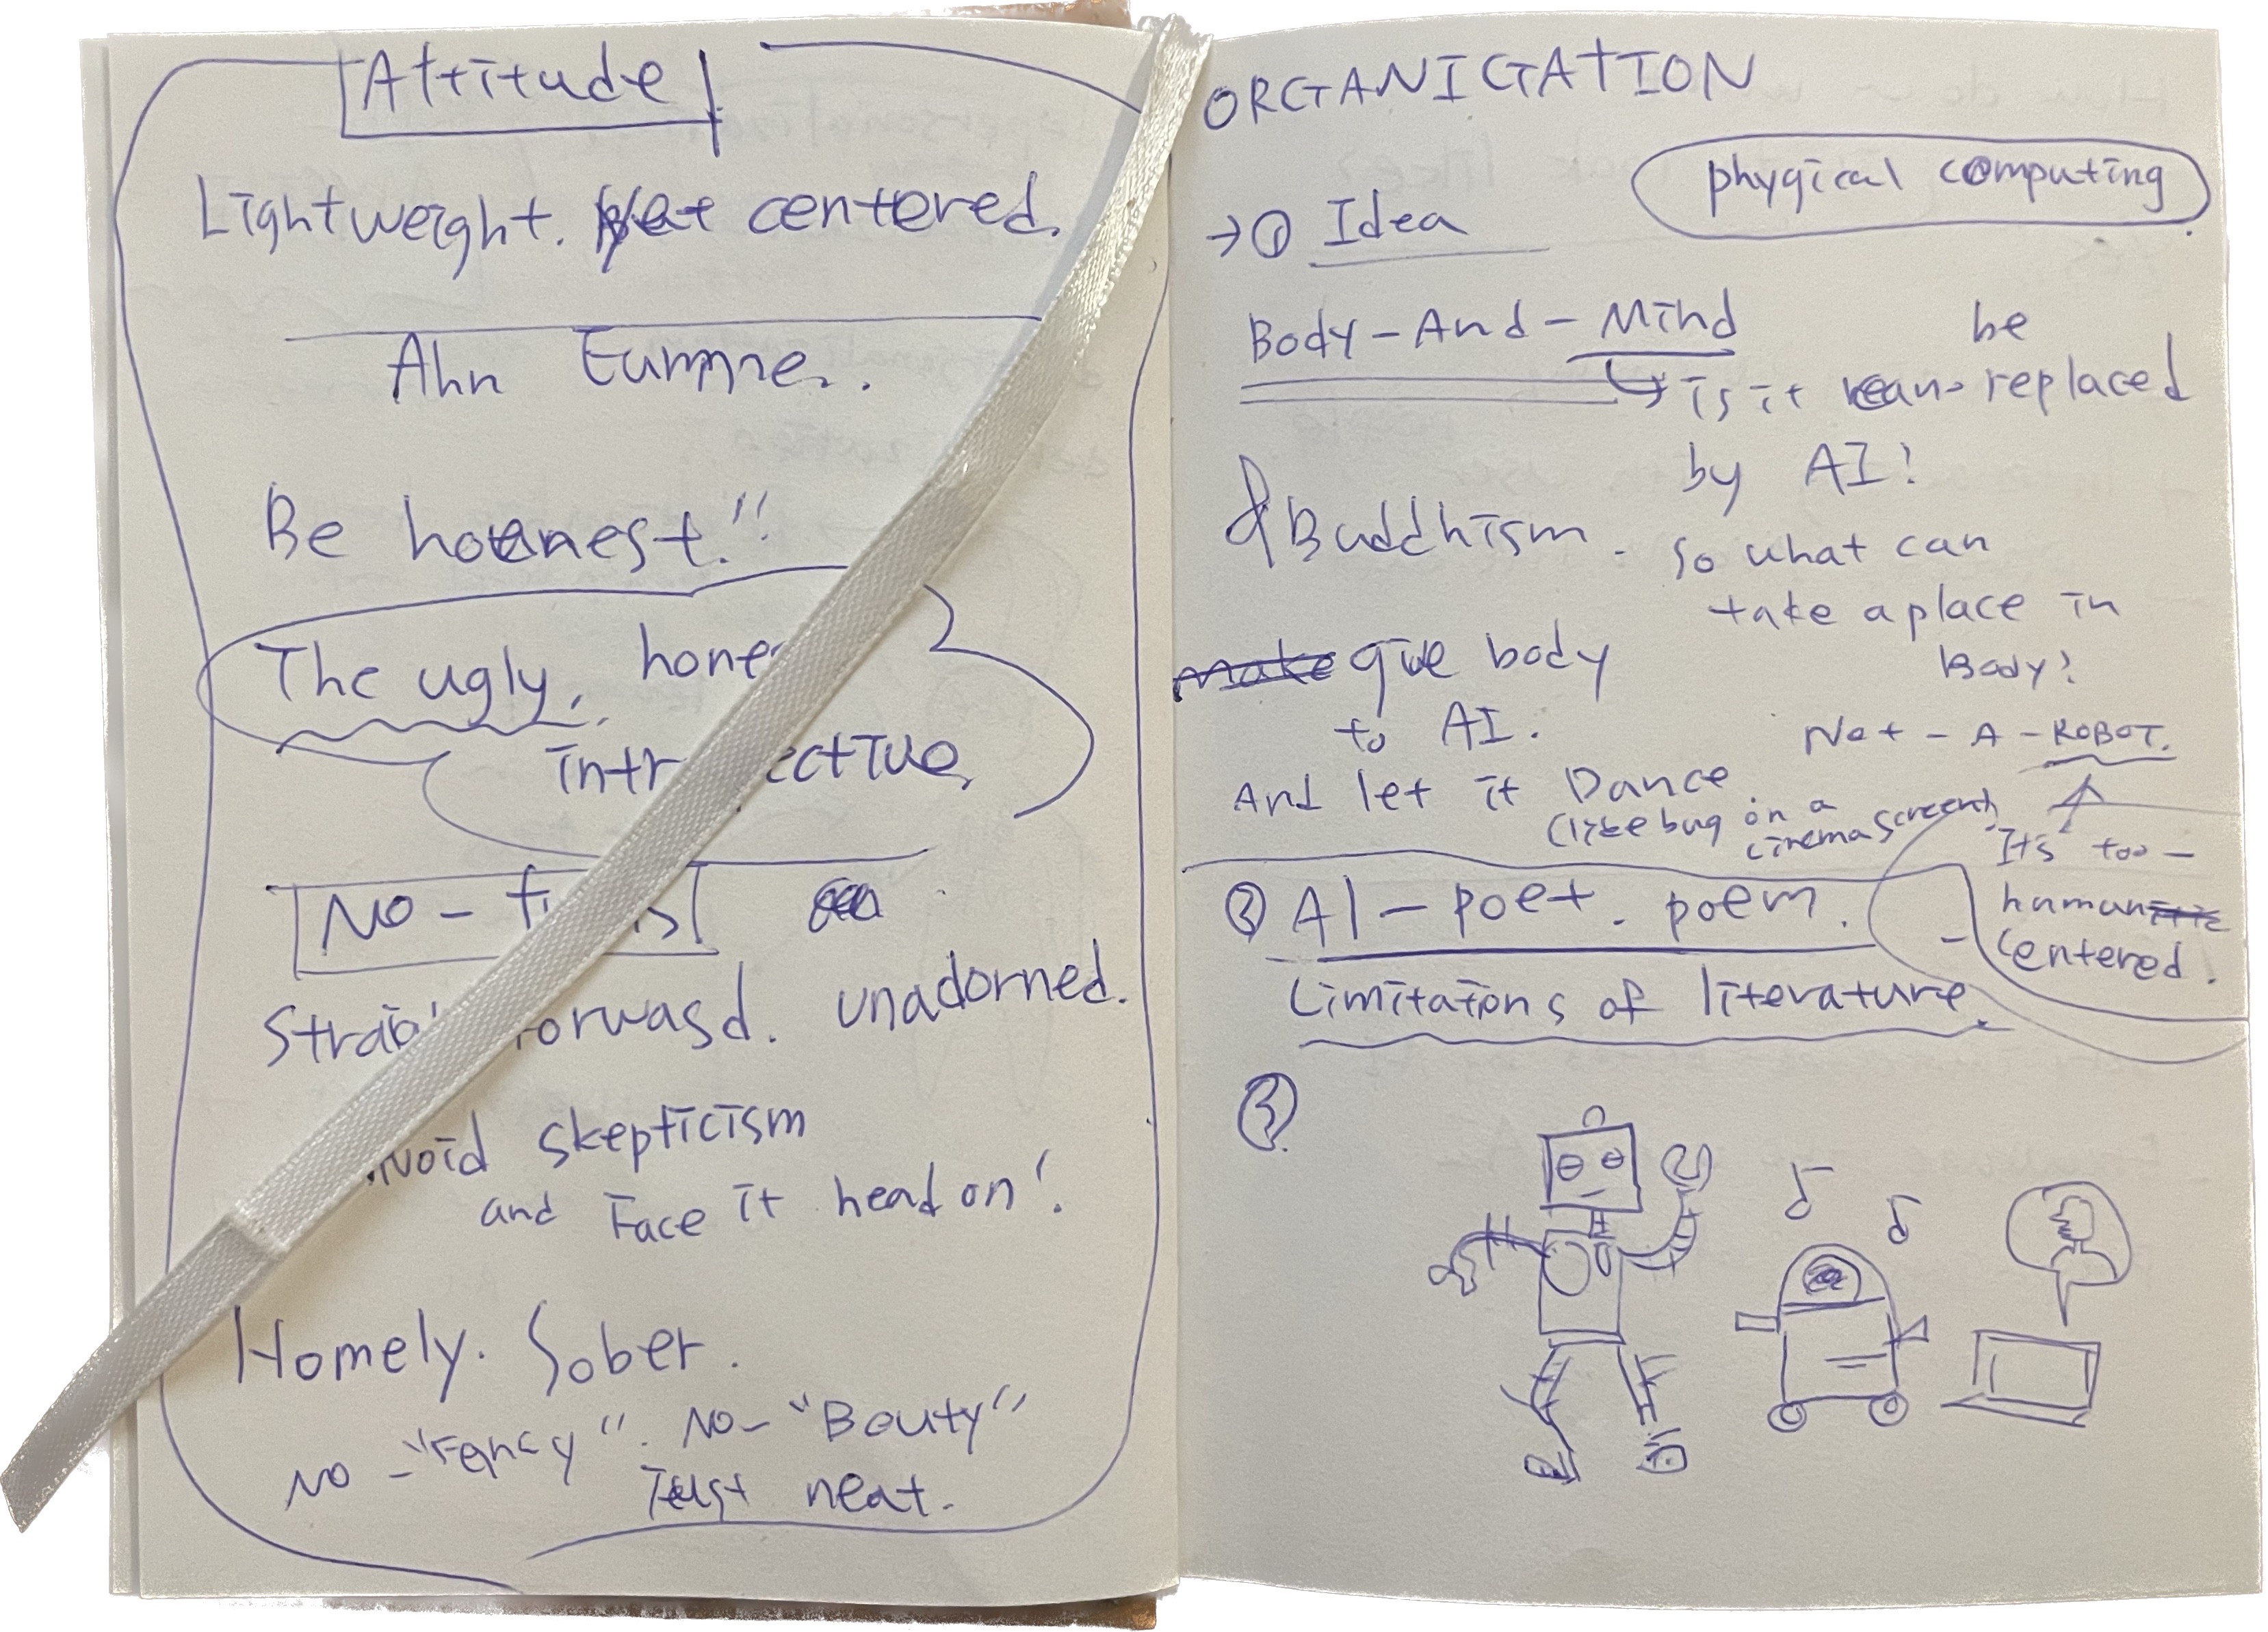 Attitude
Lightweight. yet centered.
Ahn Eunme..
Be honest."
The ugly,
No-
unadorned.
skepticism
and Face it head on!
Homely. Sober.
NO-"Fancy". NO-"Beuty"
Just neat.
ORGANIGATION
phygical computing
→① Idea
Body-And-Mind
be
is it can replaced
by AI?
&Buddhism.
so what can
take a place in
Body?
make give body
to AI.
Not-A-ROBOT.
And let it Dance
(like bug on a
cinema screen)
It's too-
human
centered.
② AI-poet. poem.
Limitations of literature.
③